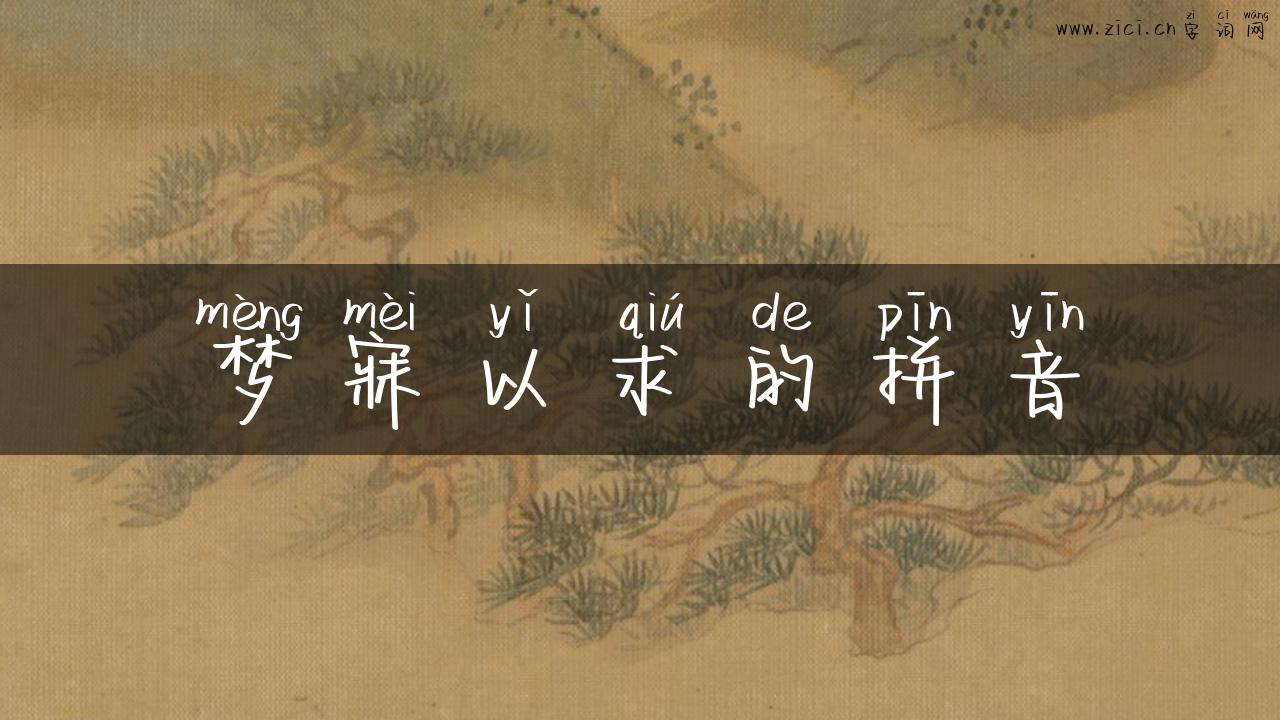 zì cí wǎng
www.zici.cn 字 词 网
mèng mèi yǐ qiú de pīn yīn
梦 寐 以 求 的 拼 音